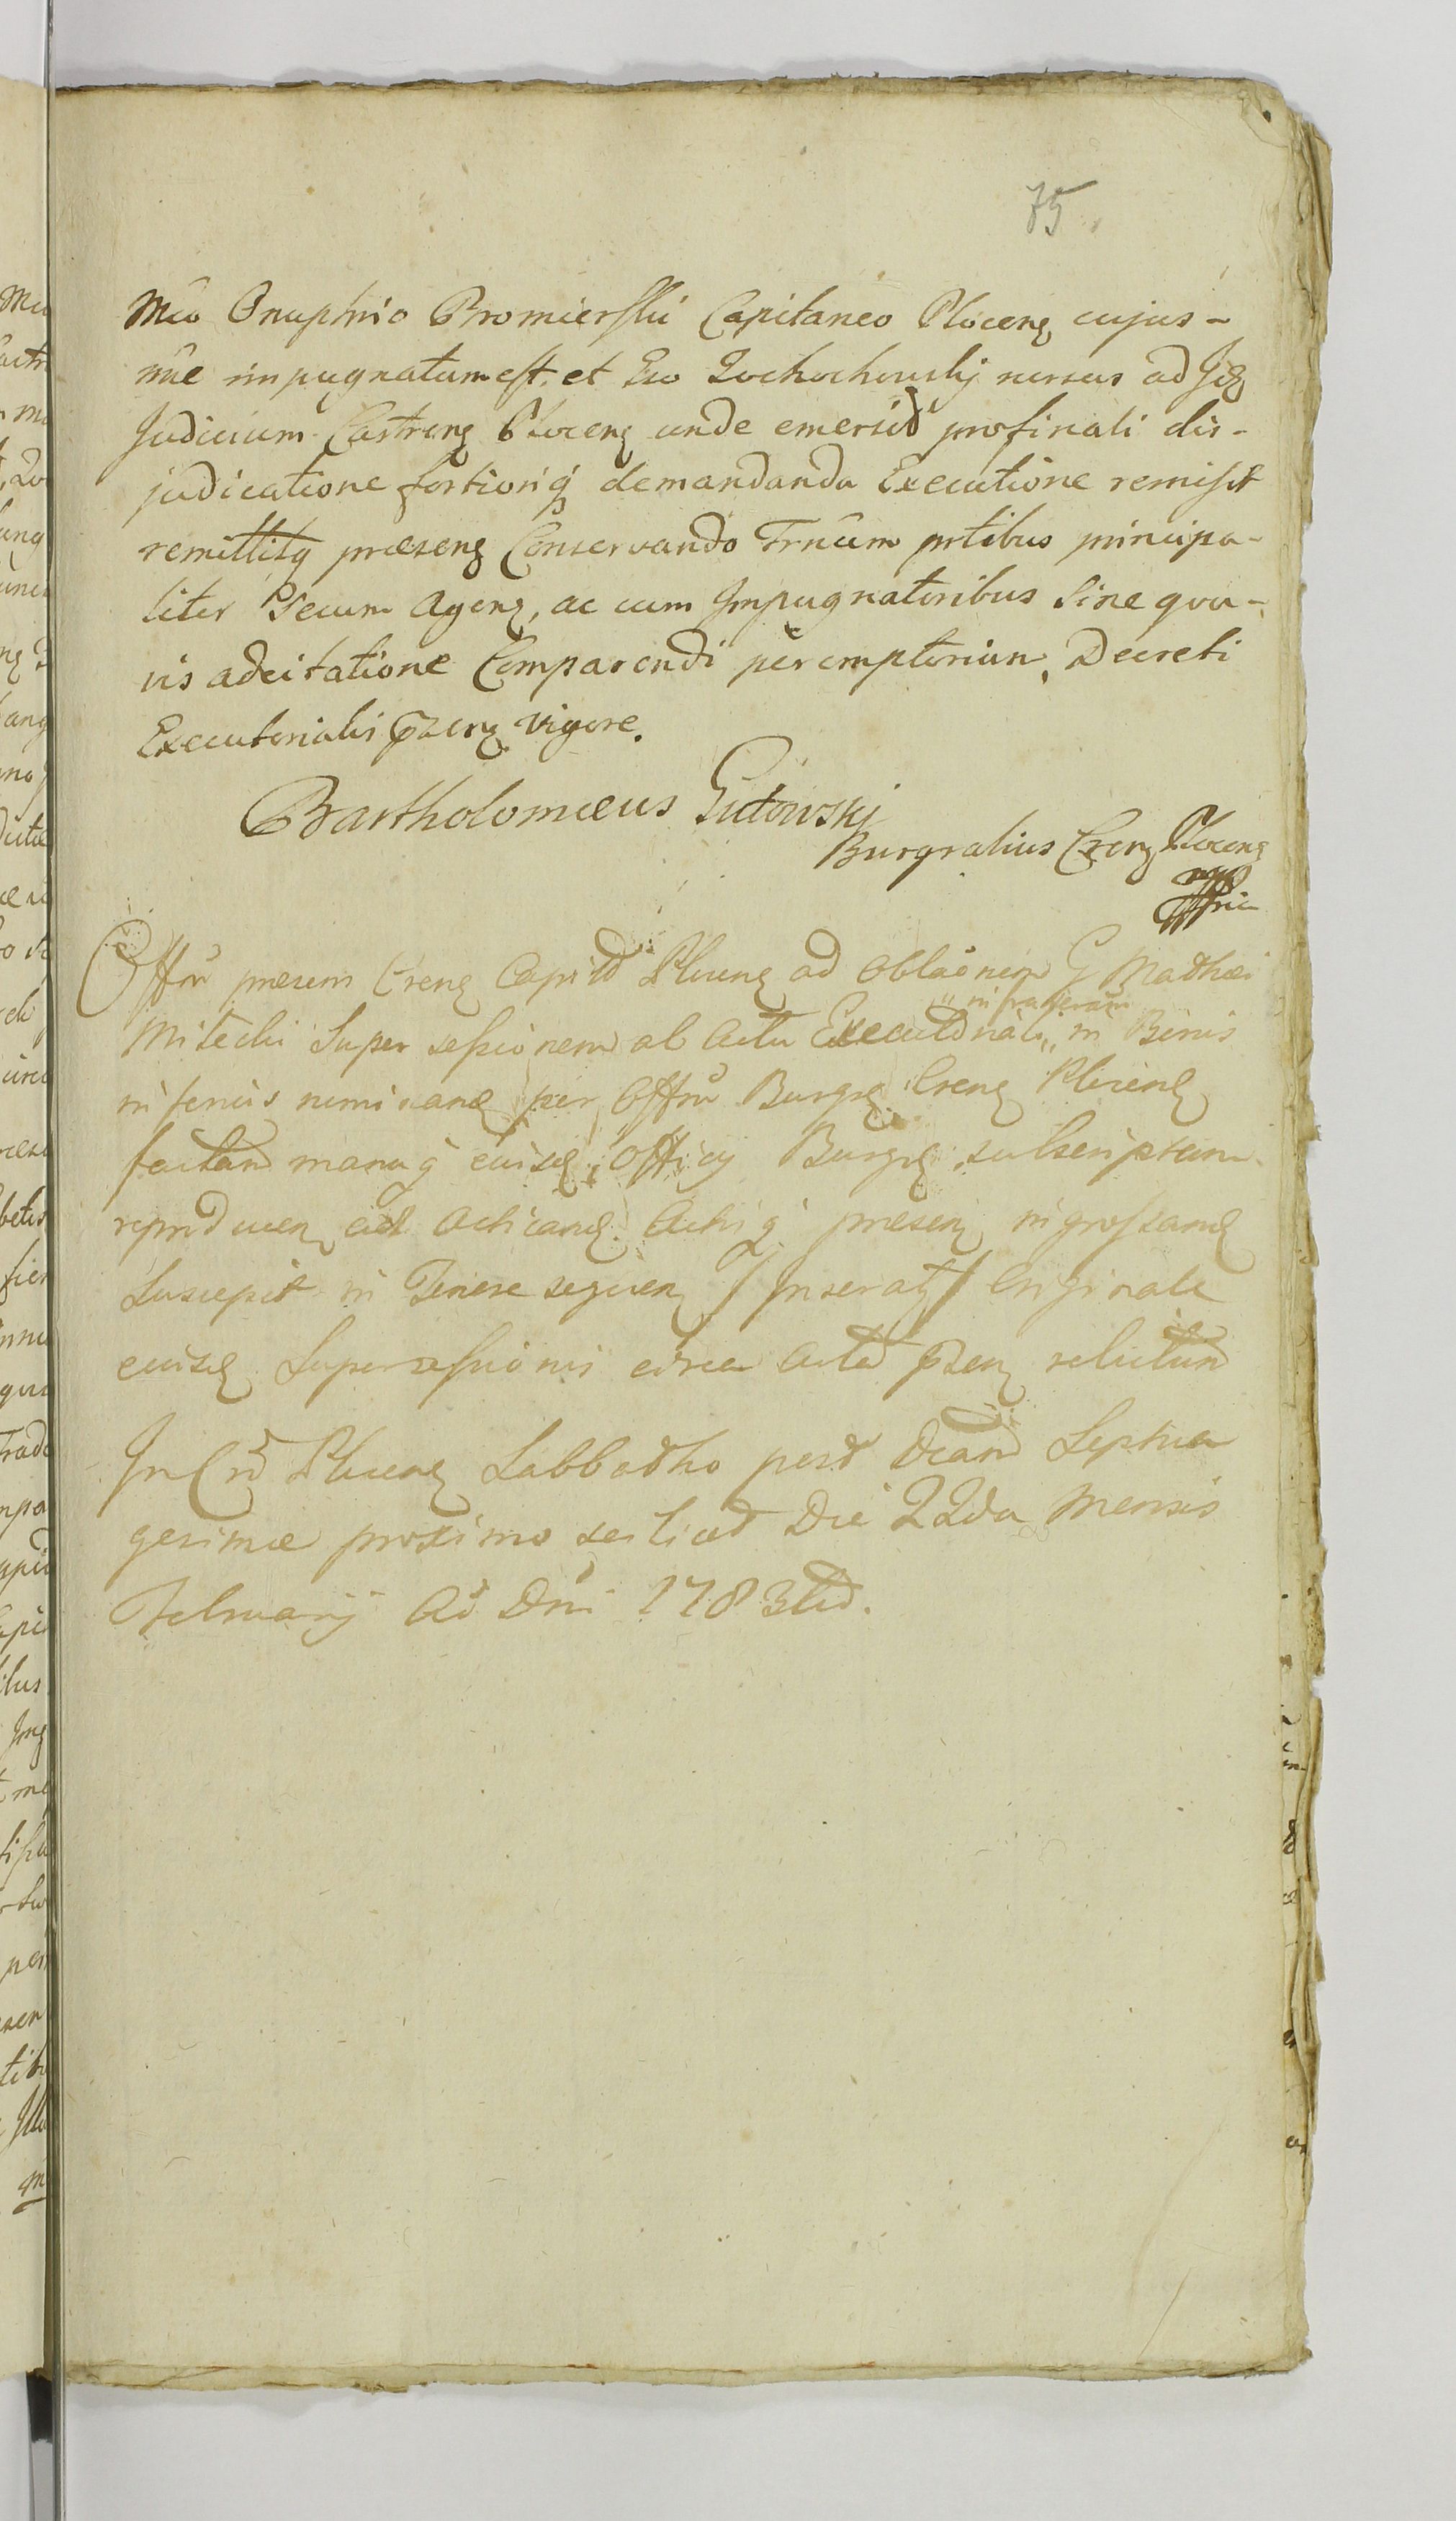 75.
Mco Onuphrio Bromierski Capitaneo Plocenꝫ cujus-
nue impugnatum est. et Eso Zochochowskij rursus ad Jdꝫ
Judicium Castrenꝫ Plocenꝫ unde emersit pro finali dis-
judicatione fortioriqꝫ demandanda Executione remisit
remittitqꝫ præsenꝫ Conservando Trnum prtibus principa-
liter secum Agenꝫ, ac cum Impugnatoribus Sine qva-
vis adcitatione Comparendi peremptorium. Decreti
Executorialis pñzenꝫ vigore.
Bartholomæus Gutowski
Burgrabius Crenꝫ Plocenꝫ
Offm præsens Crenꝫ Capitł Plocenꝫ ad Oblaonem G Mathæi
infrascrām
Mitecki Super sessionem ab Actu Executoriali in Bonis
inferius nominanꝫ per Offm Burgꝫ Crenꝫ Plocenꝫ
factam manuqꝫ ejusdꝫ Officij Burgꝫ subscriptam
reproducenꝫ ad Acticandꝫ Actisqꝫ præsenꝫ ingrossandꝫ
Suscepit in Tenore sequenꝫ / Inseratꝫ / Originale
ejusdꝫ Supersessionis circa Acta pñzenꝫ relictum
In Cro Plocenꝫ Sabbatho post Dcam Septua
gesimæ proximo scilicet Die 22da Mensis
February Ao Dni 1783tio.